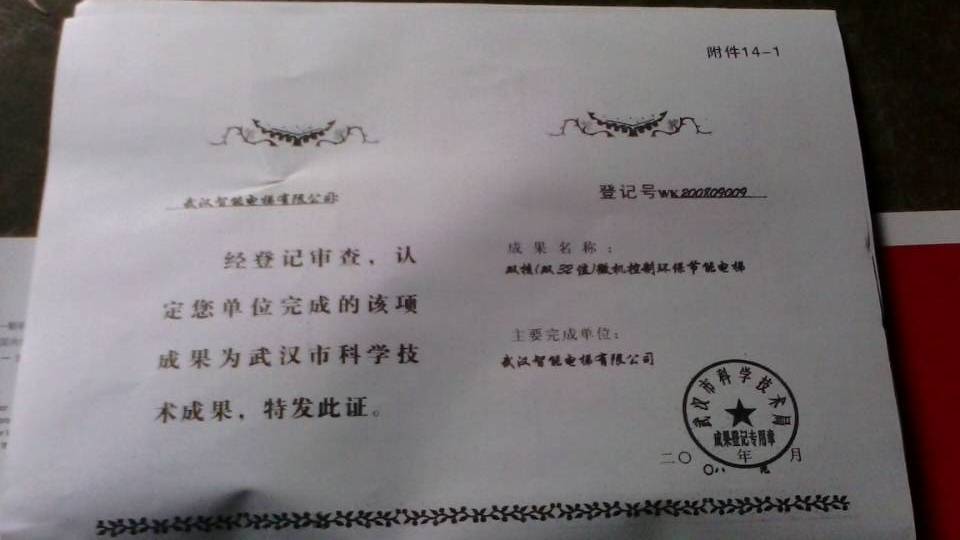 附件14-1
武汉智能电梯有限公司:
经登记审查，认
定您单位完成的该项
成果为武汉市科学技
术成果，特发此证。
登记号WK200809009
成果名称：
双核(双32值)微机控制环保节能电梯
主要完成单位:
武汉智能电梯有限公司
武汉市科学技术局
成果登记专用章
二〇〇八年 月